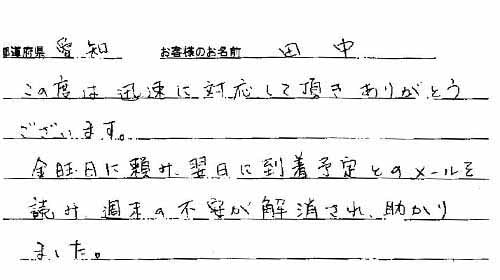 都道府県 愛知 お客様のお名前 田中
この度は迅速に対応して頂きありがとう
ございます。
金曜日に頼み、翌日に到着予定とのメールを
読み、週末の不安が解消され、助かり
ました。